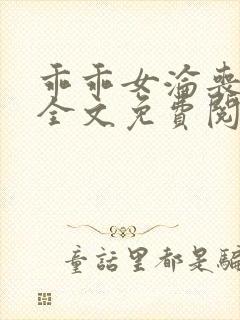 乖乖女淪喪
全文免費閱
童話里都是騙